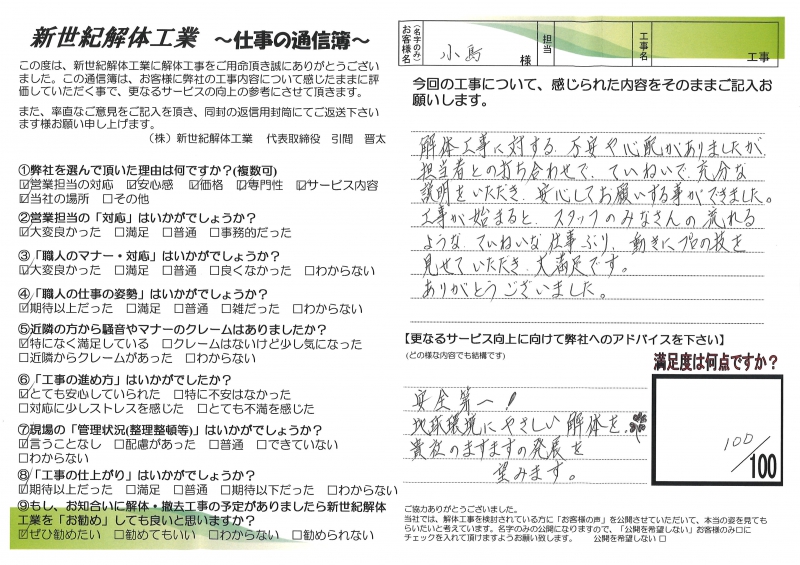 新世紀解体工業 ~仕事の通信簿~
この度は、新世紀解体工業に解体工事をご用命頂き誠にありがとうござい
ました。この通信簿は、お客様に弊社の工事内容について感じたままに評
価していただく事で、更なるサービスの向上の参考にさせて頂きます。
また、率直なご意見をご記入を頂き、同封の返信用封筒にてご返送下さい
ます様お願い申し上げます。
(株)新世紀解体工業 代表取締役 引間 晋太
①弊社を選んで頂いた理由は何ですか?(複数可)
☑営業担当の対応 ☑安心感 ☑価格 ☑専門性 ☑サービス内容
☑当社の場所 □その他
②営業担当の「対応」はいかがでしょうか?
☑大変良かった □満足 □普通 □事務的だった
③「職人のマナー・対応」はいかがでしょうか?
☑大変良かった □満足 □普通 □良くなかった □わからない
④「職人の仕事の姿勢」はいかがでしょうか?
☑期待以上だった □満足 □普通 □雑だった □わからない
⑤近隣の方から騒音やマナーのクレームはありましたか?
☑特になく満足している □クレームはないけど少し気になった
□近隣からクレームがあった □わからない
⑥「工事の進め方」はいかがでしたか?
☑とても安心していられた □特に不安はなかった
□対応に少しストレスを感じた □とても不満を感じた
⑦現場の「管理状況(整理整頓等)」はいかがでしょうか?
☑言うことなし □配慮があった □普通 □できていない
□わからない
⑧「工事の仕上がり」はいかがでしょうか?
☑期待以上だった □満足 □普通 □期待以下だった □わからない
⑨もし、お知合いに解体・撤去工事の予定がありましたら新世紀解体
工業を「お勧め」しても良いと思いますか?
☑ぜひ勧めたい □勧めてもいい □わからない □勧められない
お客様名
(名字のみ)
小島 様
担当
工事名
工事
今回の工事について、感じられた内容をそのままご記入お
願いします。
解体工事に対する、不安や心配がありましたが、
担当者との打ち合わせで、ていねいで、充分な
説明をいただき、安心してお願いする事ができました。
工事が始まると、スタッフのみなさんの流れる
ような、ていねいな仕事ぶり、動きにプロの技を
見せていただき、大満足です。
ありがとうございました。
【更なるサービス向上に向けて弊社へのアドバイスを下さい】
(どの様な内容でも結構です)
安全第一!
地球環境にやさしい解体を、
貴社のますますの発展を
望みます。
満足度は何点ですか?
100/100
ご協力ありがとうございました。
当社では、解体工事を検討されている方に「お客様の声」を公開させていただいて、本当の姿を見ても
らいたいと考えています。名字のみの公開になりますので、「公開を希望しない」お客様のみ□に
チェックを入れて頂けますようお願い致します。 公開を希望しない□